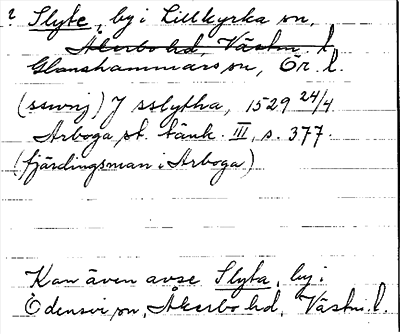 ? Slyte, by i Lillkyrka sn,
Åkerbo hd, Västm. l.
Glanshammars sn, Ör. l.
(sswrij) J sslytha, 1529 24/4
Arboga st. tänk. III, s. 377.
(fjärdingsman i Arboga)
Kan även avse Slyta, by i
Odensvi sn, Åkerbo hd, Västm. l.